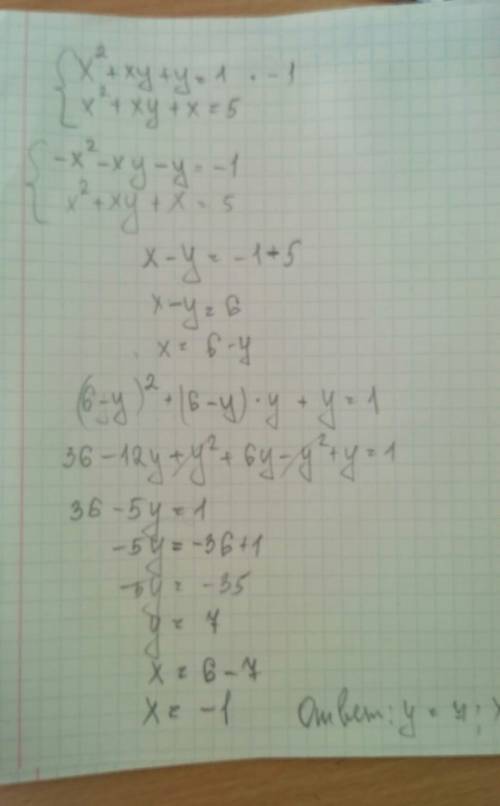 x² + xy + y = 1 · -1
x² + xy + x = 5
-x² - xy - y = -1
x² + xy + x = 5
x - y = -1 + 5
x - y = 6
x = 6 - y
(6 - y)² + (6 - y) · y + y = 1
36 - 12y + y² + 6y - y² + y = 1
36 - 5y = 1
-5y = -36 + 1
-5y = -35
y = 7
x = 6 - 7
x = -1 Ответ: y = 7; x